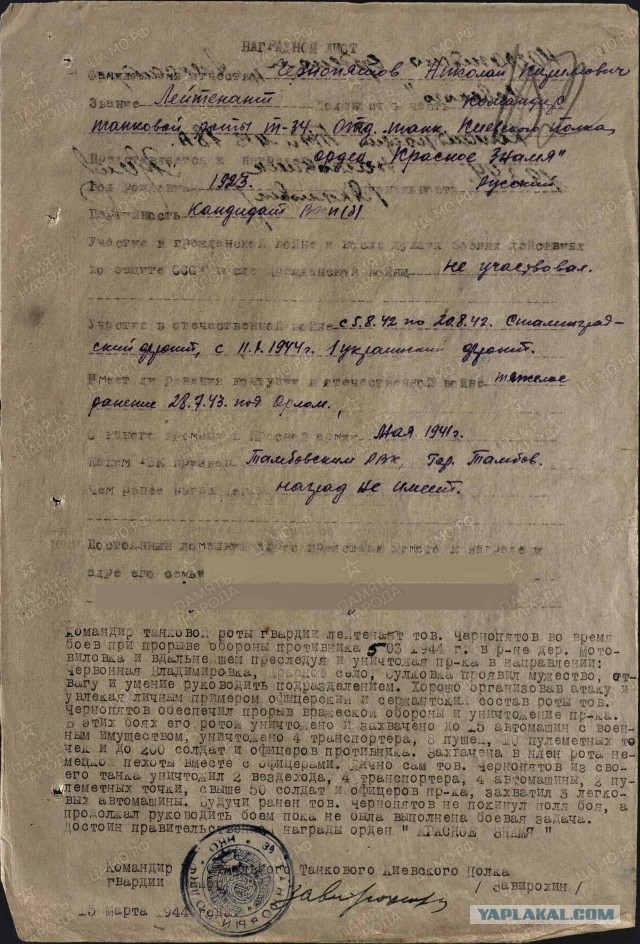 НАГРАДНОЙ ЛИСТ
Чернопятов Николай
Звание Лейтенант Командир
танковой роты т-34. Отд. танк. Киевского полка
орден "Красное Знамя"
Год рождения 1923. русский
Партийность Кандидат ВКП(б)
Участие в гражданской войне и последующих боевых действиях
по защите СССР после гражданской войны не участвовал.
Участие в отечественной войне с 5.8.42 по 20.8.42. Сталинград-
ский фронт, с 11.1.1944г. 1 украинский фронт.
Имеет ли ранения контузии в отечественной войне тяжелое
ранение 28.7.43. под Орлом.
С какого времени в Красной армии Мая 1941г.
Каким РВК призван Тамбовским РВК, гор. Тамбов.
Чем ранее награжден наград не имеет.
Постоянный домашний адрес представляемого к награде и
адрес его семьи
Командир танковой роты гвардии лейтенант тов. Чернопятов во время
боев при прорыве обороны противника 5 03 1944 г. в р-не дер. Мото-
виловка и вдальнейшем преследуя и уничтожая пр-ка в направлении:
Червонная Владимировка, Красное село, Сулковка проявил мужество, от-
вагу и умение руководить подразделением. Хорошо организовав атаку и
увлекая личным примером офицерский и сержантский состав роты тов.
Чернопятов обеспечил прорыв вражеской обороны и уничтожение пр-ка.
В этих боях его ротой уничтожено и захвачено до 15 автомашин с воен-
ным имуществом, уничтожено 4 транспортера, 8 пушек, 10 пулеметных то
чек и до 200 солдат и офицеров противника. Захвачена в плен рота не-
мецкой пехоты вместе с офицерами. Лично сам тов. Чернопятов из сво-
его танка уничтожил 2 вездехода, 4 транспортера, 4 автомашины, 2 пу-
леметных точки, свыше 50 солдат и офицеров пр-ка, захватил 3 легко-
вых автомашины. Будучи ранен тов. Чернопятов не покинул поля боя, а
продолжал руководить боем пока не была выполнена боевая задача.
Достоин правительственной награды орден " КРАСНОЕ ЗНАМЯ "
Командир Танкового Киевского Полка
гвардии / Завирохин /
15 марта 1944 года
YAPLAKAL.COM